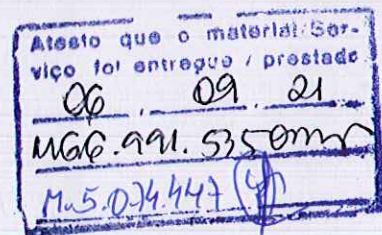 Atesto que o material/Ser-
viço foi entregue / prestado
06 . 09 . 21
MG6.991.535
M.5.074.447